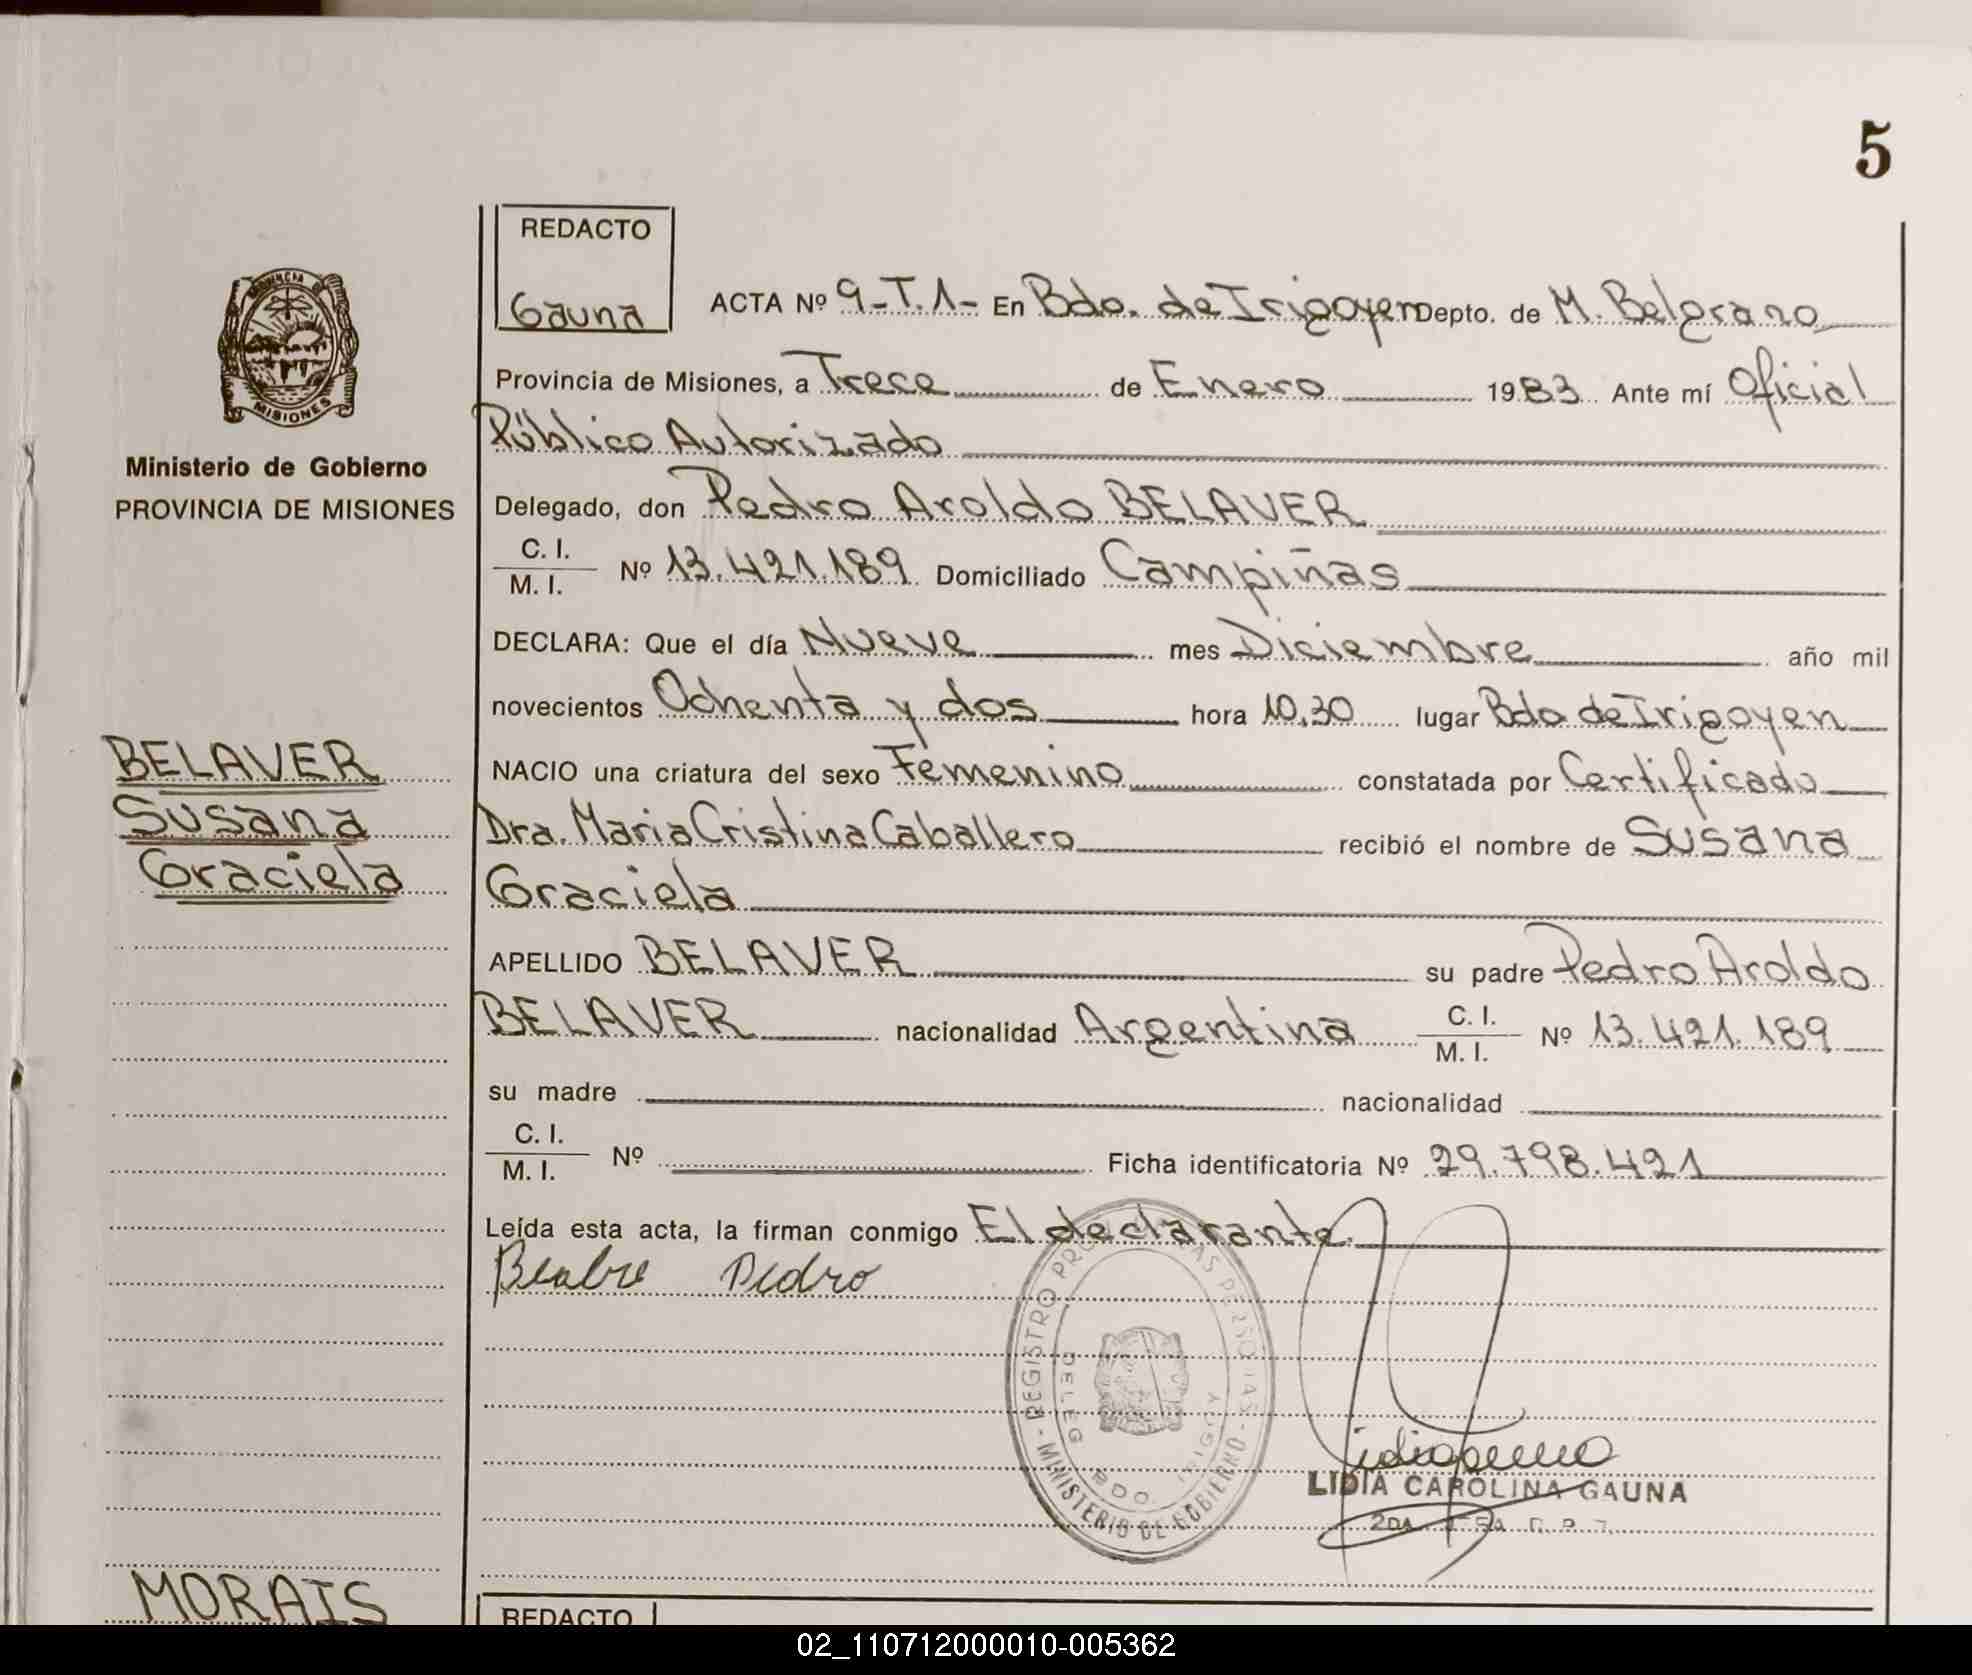 5
REDACTO
Gauna
ACTA Nº 9-T.1- En Bdo. de Irigoyen Depto. de M. Belgrano
Provincia de Misiones, a Trece de Enero 1983 Ante mí Oficial
Público Autorizado
Delegado, don Pedro Aroldo BELAVER
C. I.
M. I. Nº 13.421.189 Domiciliado Campiñas
DECLARA: Que el día Nueve mes Diciembre año mil
novecientos Ochenta y dos hora 10,30 lugar Bdo de Irigoyen
NACIO una criatura del sexo Femenino constatada por Certificado
Dra. Maria Cristina Caballero recibió el nombre de Susana
Graciela
APELLIDO BELAVER su padre Pedro Aroldo
BELAVER nacionalidad Argentina C. I. M. I. Nº 13.421.189
su madre nacionalidad
C. I.
M. I. Nº Ficha identificatoria Nº 29.798.421
Leída esta acta, la firman conmigo El declarante
Pedro
REGISTRO PERSONAS - MINISTERIO DE GOBIERNO -
DELEG BDO. IRIGOY
LIDIA CAROLINA GAUNA
PROVINCIA DE
MISIONES
Ministerio de Gobierno
PROVINCIA DE MISIONES
BELAVER
Susana
Graciela
MORAIS
REDACTO
02_110712000010-005362